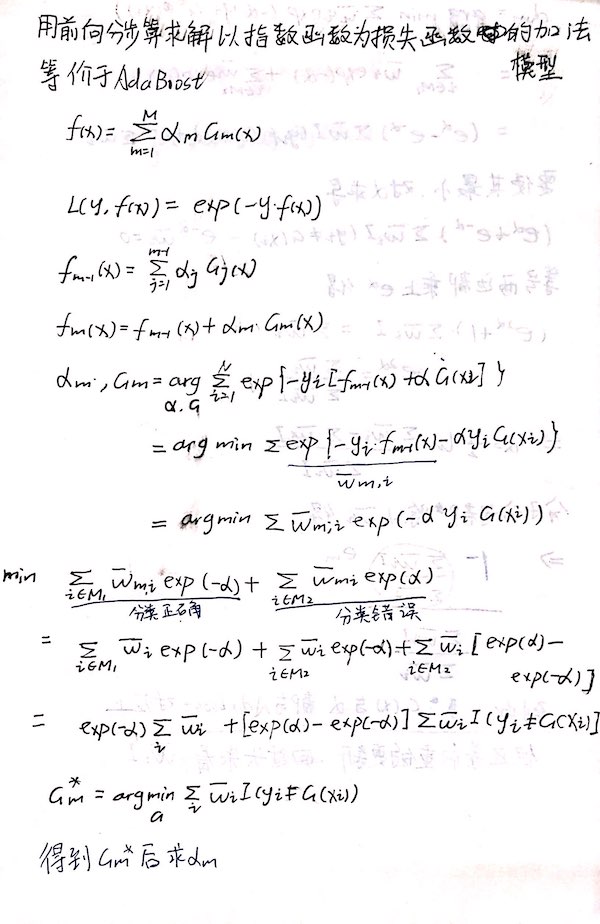 用前向分步算求解以指数函数为损失函数的加法
等价于AdaBoost 模型
f(x) = \sum_{m=1}^{M} α_m G_m(x)
L(y, f(x)) = exp(-y·f(x))
f_{m-1}(x) = \sum_{j=1}^{m-1} α_j G_j(x)
f_m(x) = f_{m-1}(x) + α_m·G_m(x)
α_m, G_m = arg_{α.G} \sum_{i=1}^{N} exp{-y_i[-f_{m-1}(x) + α G(x_i)]}
= arg min Σ exp{-y_i·f_{m-1}(x) - αy_i G(x_i)}
\bar{w}_{m,i}
= argmin Σ \bar{w}_{m,i} exp(-α y_i G(x_i))
min \sum_{i∈M_1} \bar{w}_{m,i} exp(-α) + \sum_{i∈M_2} \bar{w}_{mi} exp(α)
分类正确 分类错误
= \sum_{i∈M_1} \bar{w}_i exp(-α) + \sum_{i∈M_2} \bar{w}_i exp(-α) + \sum_{i∈M_2} \bar{w}_i [exp(α) -
exp(-α)]
= exp(-α) \sum_i \bar{w}_i + [exp(α) - exp(-α)] Σ \bar{w}_i I(y_i ≠ G(x_i)]
G_m^* = argmin_G \sum_i \bar{w}_i I(y_i ≠ G(x_i))
得到 G_m^* 后求 α_m